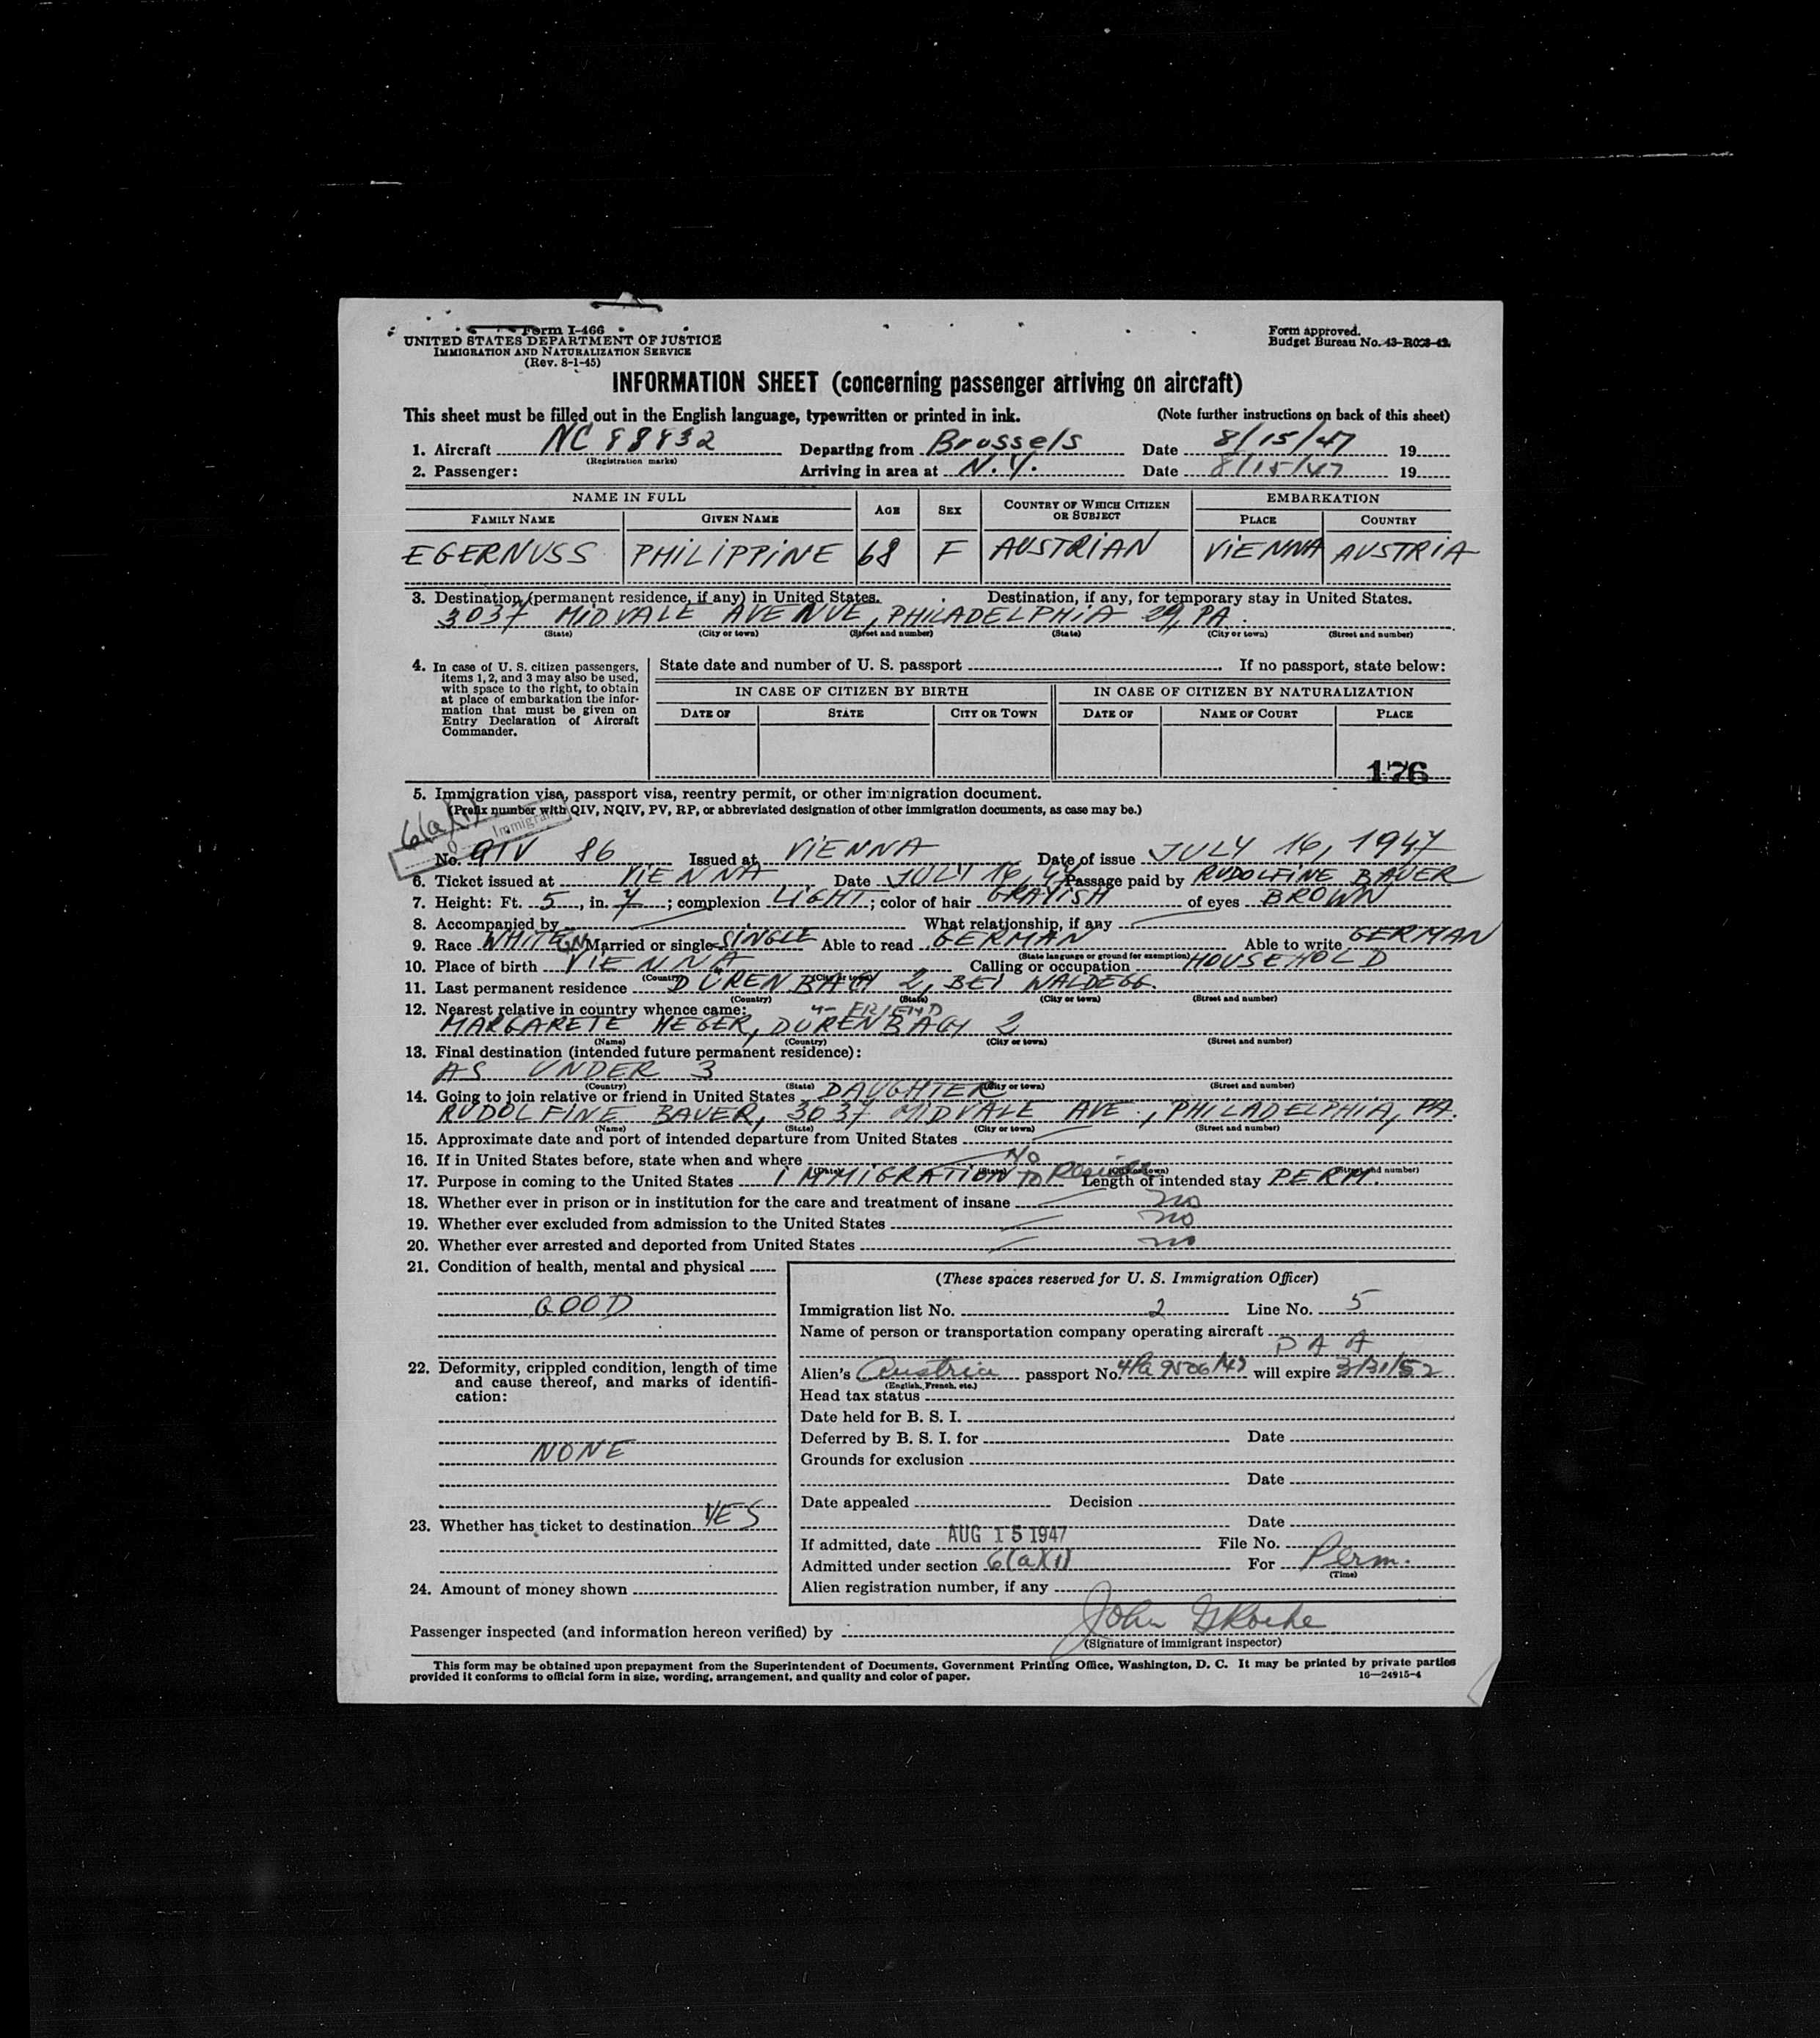 Form I-466
UNITED STATES DEPARTMENT OF JUSTICE
IMMIGRATION AND NATURALIZATION SERVICE
(Rev. 8-1-45)
Form approved.
Budget Bureau No. 43-R028-42.
INFORMATION SHEET (concerning passenger arriving on aircraft)
This sheet must be filled out in the English language, typewritten or printed in ink. (Note further instructions on back of this sheet)
1. Aircraft NC 88832 Departing from Brussels Date 8/15/47 19
(Registration marks)
2. Passenger: Arriving in area at N.Y. Date 8/15/47 19
NAME IN FULL AGE SEX COUNTRY OF WHICH CITIZEN OR SUBJECT EMBARKATION
FAMILY NAME GIVEN NAME PLACE COUNTRY
EGERNUSS PHILIPPINE 68 F AUSTRIAN VIENNA AUSTRIA
3. Destination (permanent residence, if any) in United States. Destination, if any, for temporary stay in United States.
3037 MIDVALE AVENUE, PHILADELPHIA 29, PA.
(State) (City or town) (Street and number) (State) (City or town) (Street and number)
4. In case of U. S. citizen passengers, items 1, 2, and 3 may also be used, with space to the right, to obtain at place of embarkation the information that must be given on Entry Declaration of Aircraft Commander.
State date and number of U. S. passport If no passport, state below:
IN CASE OF CITIZEN BY BIRTH IN CASE OF CITIZEN BY NATURALIZATION
DATE OF STATE CITY OR TOWN DATE OF NAME OF COURT PLACE
176
5. Immigration visa, passport visa, reentry permit, or other immigration document.
(Prefix number with QIV, NQIV, PV, RP, or abbreviated designation of other immigration documents, as case may be.)
6(a)(1)
Immigrant
No. QIV 86 Issued at VIENNA Date of issue JULY 16, 1947
6. Ticket issued at VIENNA Date JULY 16, 47 Passage paid by RUDOLFINE BAUER
7. Height: Ft. 5, in. 7; complexion LIGHT; color of hair GRAYISH of eyes BROWN
8. Accompanied by What relationship, if any
9. Race WHITE Married or single SINGLE Able to read GERMAN Able to write GERMAN
(State language or ground for exemption)
10. Place of birth VIENNA Calling or occupation HOUSEHOLD
(Country) (City or town)
11. Last permanent residence DÜRENBACH 2, BEI WALDEGG.
(Country) (State) (City or town) (Street and number)
12. Nearest relative in country whence came: FRIEND
MARGARETE HEGER, DÜRENBACH 2
(Name) (Country) (City or town) (Street and number)
13. Final destination (intended future permanent residence):
AS UNDER 3
(Country) (State) (City or town) (Street and number)
14. Going to join relative or friend in United States DAUGHTER
RUDOLFINE BAUER, 3037 MIDVALE AVE., PHILADELPHIA, PA.
(Name) (State) (City or town) (Street and number)
15. Approximate date and port of intended departure from United States
16. If in United States before, state when and where No
(Date) (State) (City or town) (Street and number)
17. Purpose in coming to the United States IMMIGRATION TO Length of intended stay PERM.
18. Whether ever in prison or in institution for the care and treatment of insane no
19. Whether ever excluded from admission to the United States no
20. Whether ever arrested and deported from United States no
21. Condition of health, mental and physical
GOOD
22. Deformity, crippled condition, length of time and cause thereof, and marks of identification:
NONE
23. Whether has ticket to destination YES
24. Amount of money shown
(These spaces reserved for U. S. Immigration Officer)
Immigration list No. 2 Line No. 5
Name of person or transportation company operating aircraft
P A A
Alien's Austria passport No. will expire 3/31/52
(English, French, etc.)
Head tax status
Date held for B. S. I.
Deferred by B. S. I. for Date
Grounds for exclusion
Date
Date appealed Decision
Date
If admitted, date AUG 15 1947 File No.
Admitted under section 6(a)(1) For Perm.
(Time)
Alien registration number, if any
Passenger inspected (and information hereon verified) by John
(Signature of immigrant inspector)
This form may be obtained upon prepayment from the Superintendent of Documents, Government Printing Office, Washington, D. C. It may be printed by private parties
provided it conforms to official form in size, wording, arrangement, and quality and color of paper. 16—24915-4